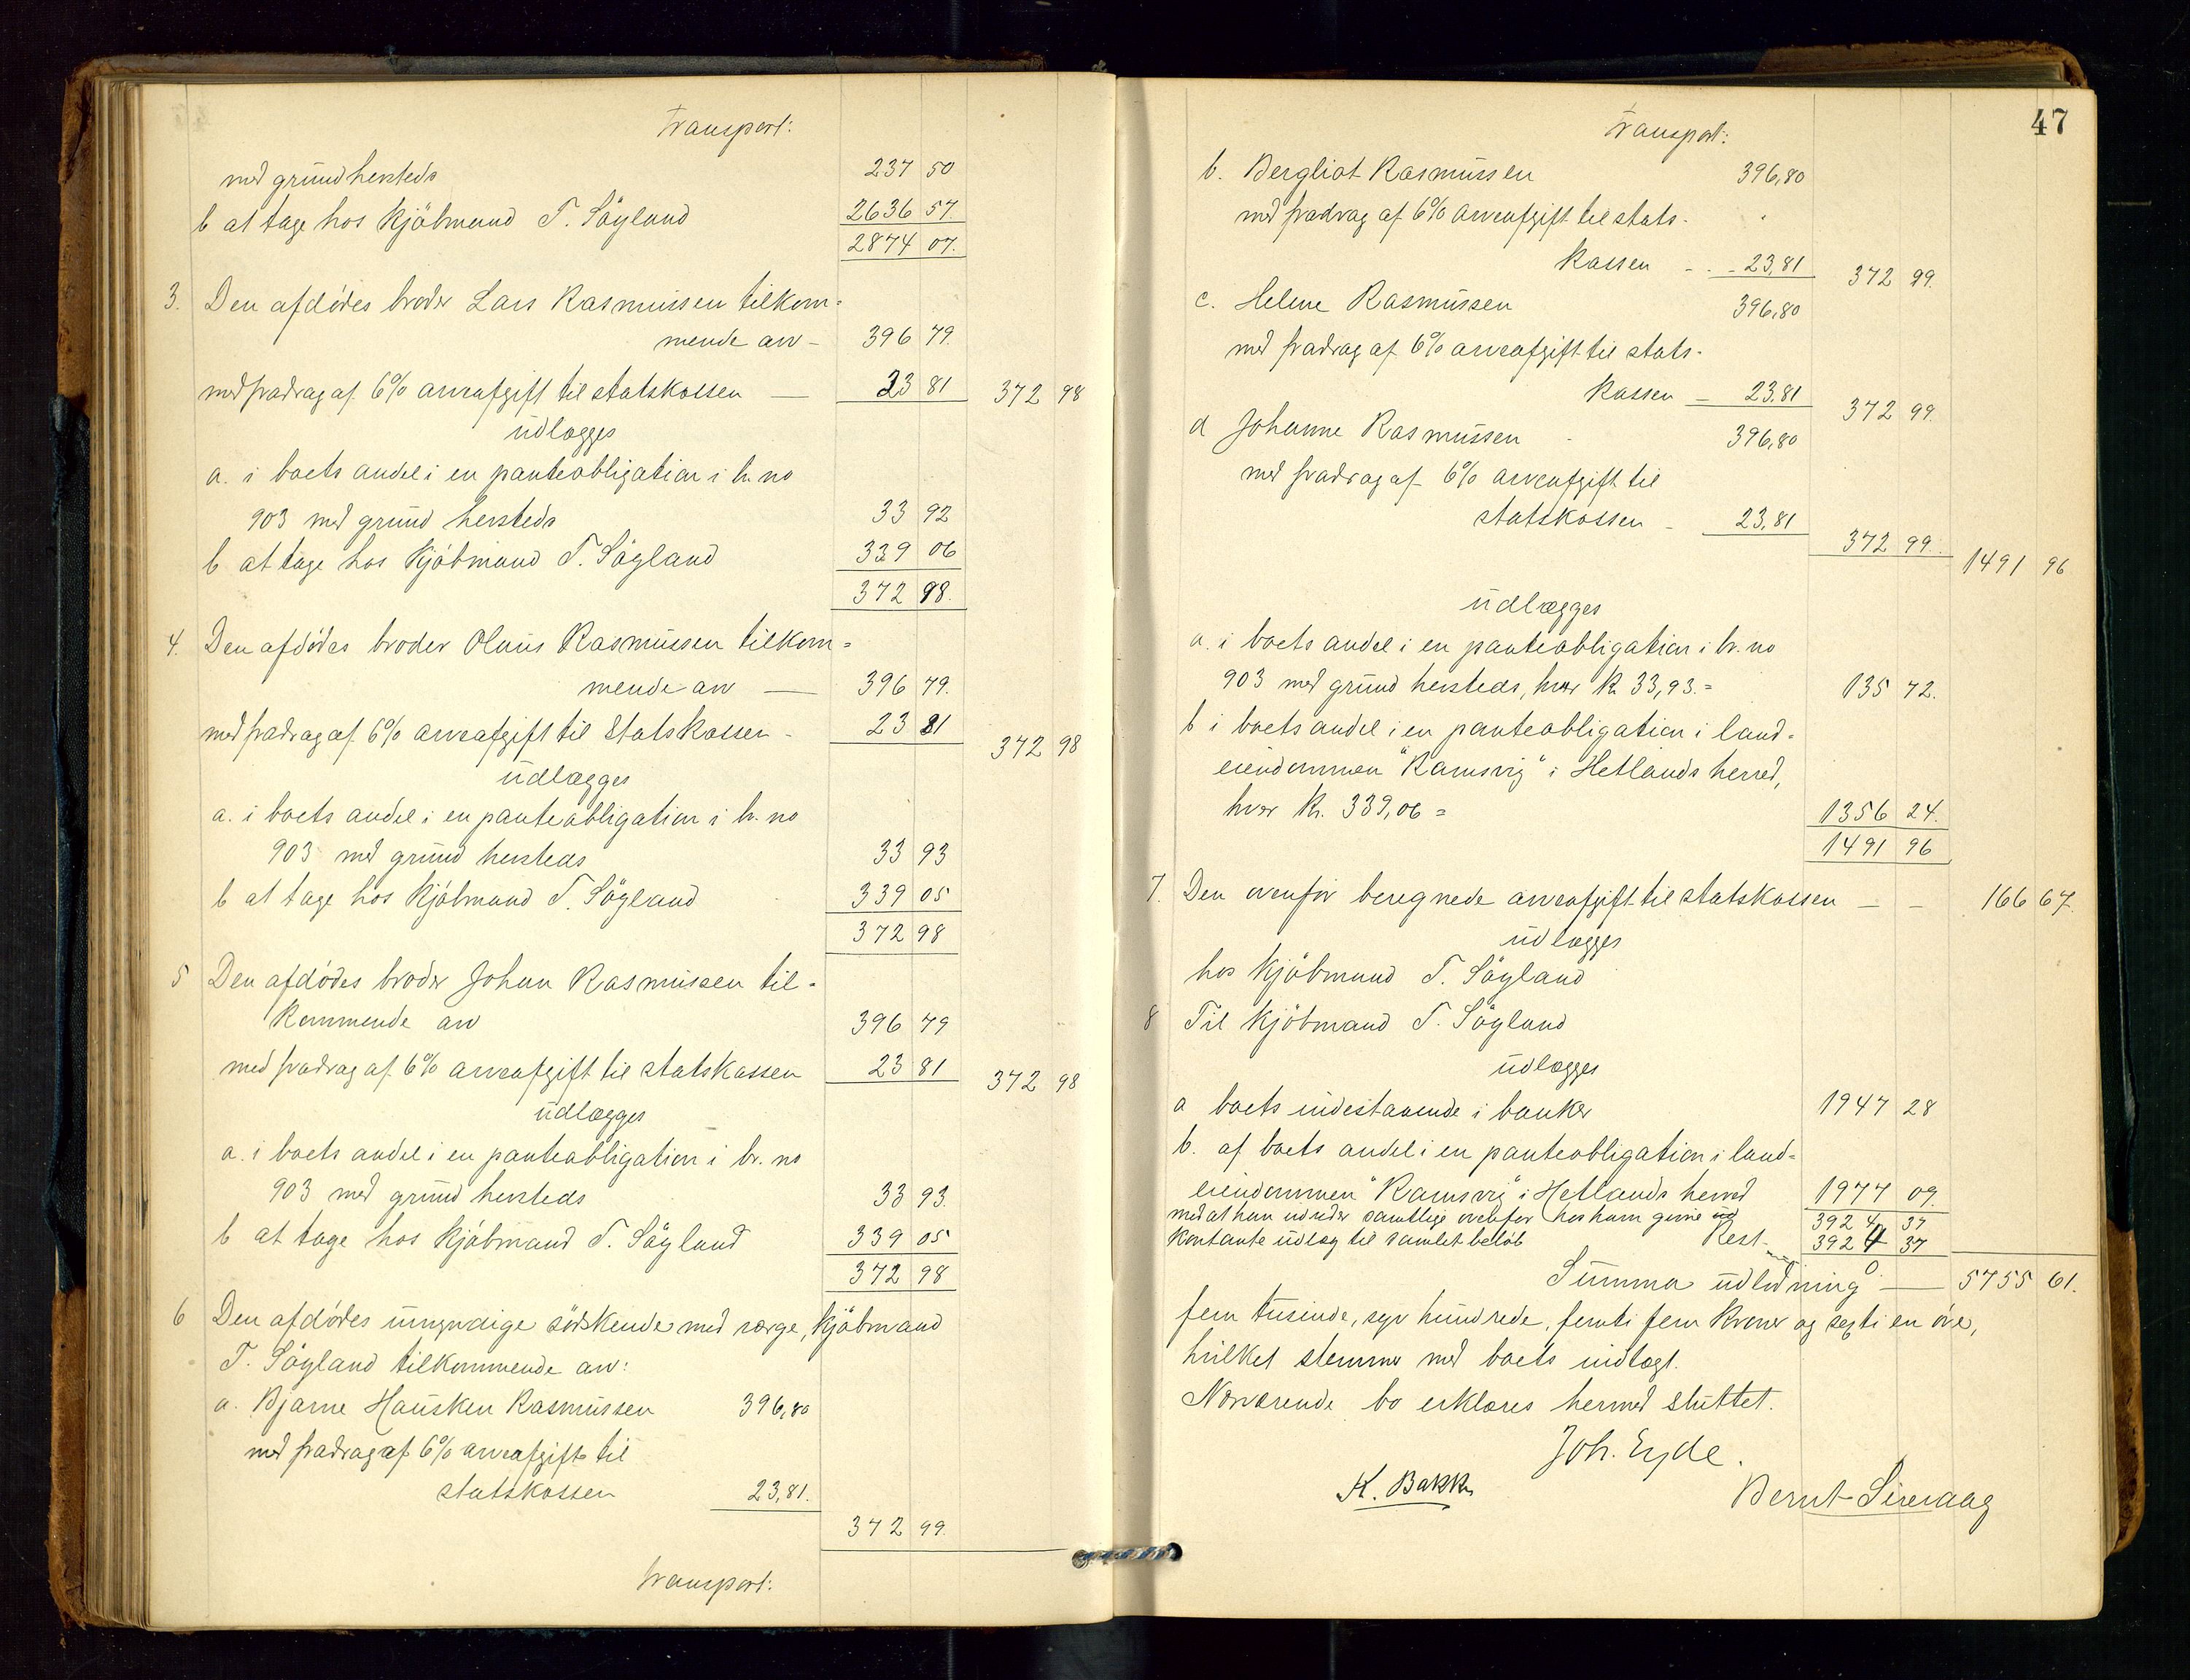 Transport:
med grund hersteds 237 50
b at tage hos kjöbmand T. Söyland 2636 57
2874 07.
3. Den afdödes broder Lars Rasmussen tilkom=
mende arv – 396 79.
med fradrag af 6% arveafgift til statskassen — 23 81 372 98
udlægges
a. i boets andel i en panteobligation i br. no
903 med grund hersteds 33 92
b at tage hos kjöbmand T. Söyland 339 06
372 98.
4. Den afdödes broder Olaus Rasmussen tilkom=
mende arv — 396 79.
med fradrag af 6% arveafgift til Statskassen - 23 81 372 98
udlægges
a. i boets andel i en panteobligation i br. no
903 med grund hersteds 33 93
b at tage hos kjöbmand T. Söyland 339 05
372 98
5 Den afdödes broder Johan Rasmussen til=
kommende arv 396 79
med fradrag af 6% arveafgift til statskassen 23 81 372 98
udlægges
a. i boets andel i en panteobligation i br. no
903 med grund hersteds 33 93.
b at tage hos kjöbmand T. Söyland 339 05
372 98
6 Den afdödes umyndige södskende medværge, kjöbmand
T. Söyland tilkommende arv:
a. Bjarne Hausken Rasmussen 396,80
med fradrag af 6% arveafgift til
statskassen 23,81.
372 99.
transport:
47
Transport:
b. Bergliot Rasmussen 396,80
med fradrag af 6% arveafgift til stats-
kassen - - 23,81 372 99.
c. Helene Rasmussen 396,80
med fradrag af 6% arveafgift til stats-
kassen — 23,81 372 99.
d Johanne Rasmussen 396,80
med fradrag af 6% arveafgift til
statskassen - 23,81
372 99. 1491 96
udlægges
a. i boets andel i en panteobligation i br. no
903 med grund hersteds, hver kr. 33,93. = 135 72.
b i boets andel i en panteobligation i land=
eiendommen "Ramsvig" i Hetlands herred,
hver kr. 339,06 = 1356 24.
1491 96
7. Den ovenfor beregnede arveafgift til statskassen — — 166 67.
udlægges
hos kjöbmand T. Söyland
8 Til kjöbmand T. Söyland
udlægges
a boets indestaaende i banker 1947 28
b. af boets andel i en panteobligation i land=
eiendommen "Ramsvig" i Hetlands herred 1977 09.
med at han udreder samtlige ovenfor hos ham givne ud 3924 37
kontante udlæg til samlet belöb Rest 3924 37
0
Summa udlodning — 5755 61.
fem tusinde, syv hundrede, femti fem kroner og sexti en öre,
hvilket stemmer med boets indtægt.
Nærværende bo erklæres hermed sluttet.
Joh. Eyde.
K. Bakke Bernt Sirevaag